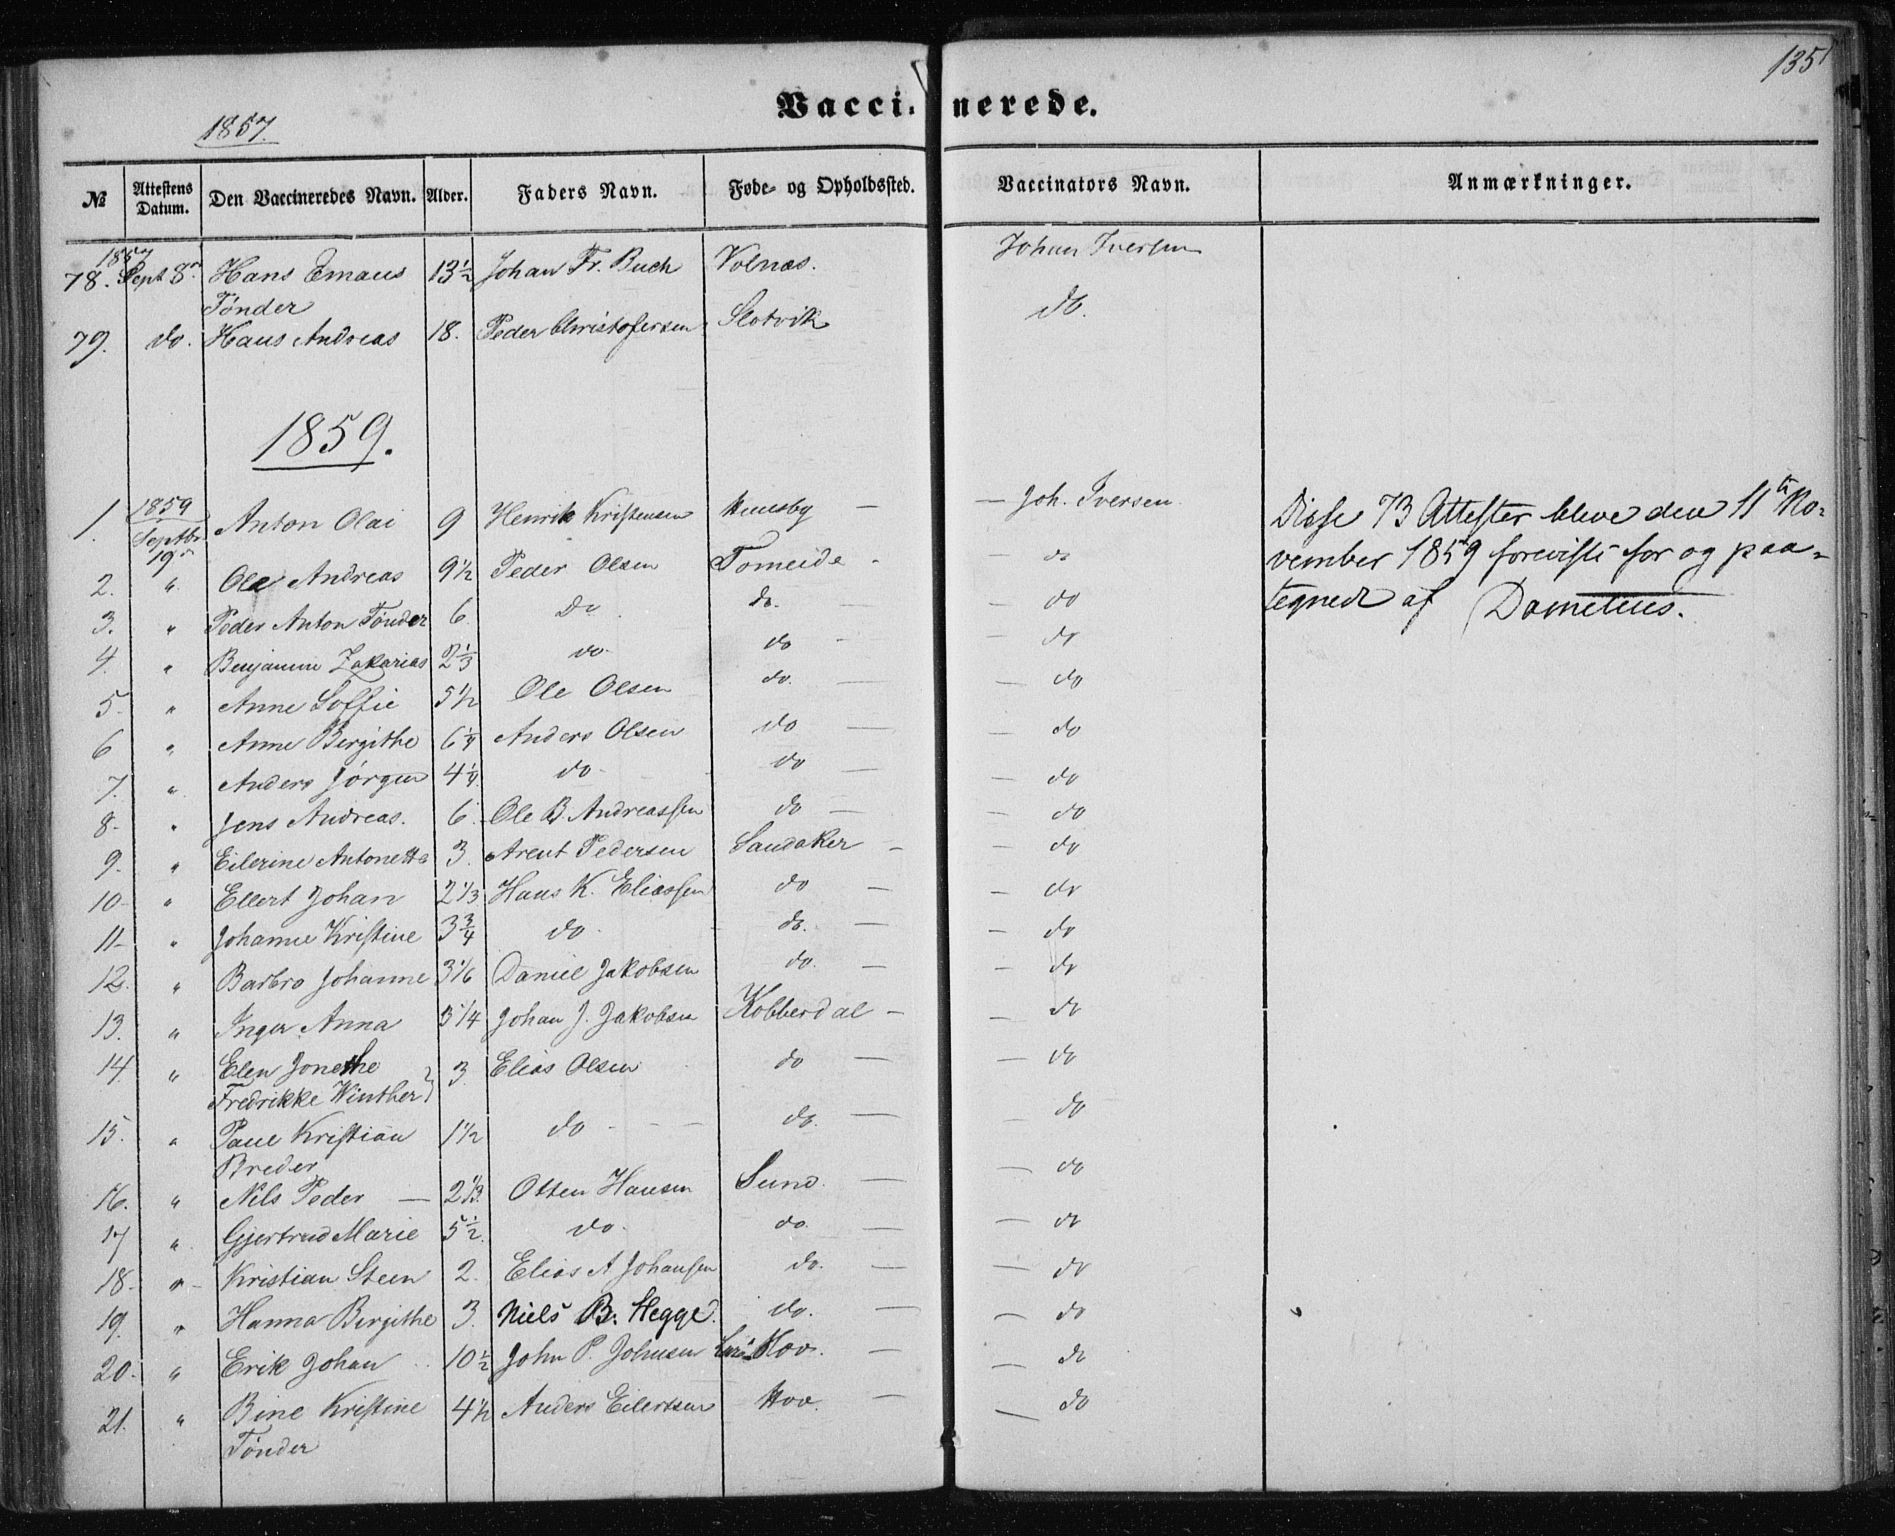 135
Vaccinerede.
1857.
№ Attestens Datum. Den Vaccineredes Navn. Alder. Faders Navn. Føde- og Opholdssted. Vaccinators Navn. Anmærkninger.
1857
78. Sept 8de Hans Emaus Tönder 13½ Johan Fr. Buch Volnæs. Johan Iversen
79. do. Hans Andreas 18. Peder Christofersen Slotvik do.
1859.
1. 1859 Septbr 19de Anton Olai 9 Henrik Kristensen — Joh. Iversen
2. " Ole Andreas 9½ Peder Olsen Tomeide - — do
3. " Peder Anton Tönder 6 Do do. — — do
4. " Benjamin Zakarias 2⅓ do do - — do
5. " Anne Soffie 5½ Ole Olsen do. — — do
6 " Anne Birgithe 6¼ Anders Olsen do — — do
7. " Anders Jörgen 4¼ do do — — do
8. " Jens Andreas. 6 Ole B. Andreassen do — — do
9. " Eilerine Antonette 3. Arent Pedersen Sandaker - — do
10 " Ellert Johan 2⅓ Hans K. Eliassen do — — do
11 " Johanne Kristine 3¾ do do. — — do
12. " Barbro Johanne 3⅙ Daniel Jakobsen do. — — do
13. " Inger Anna 3¼ Johan J. Jakobsen Kobberdal — — do
14 " Elen Jonethe Fredrikke Winther 3 Elias Olsen do — — do
15. " Paul Kristian Breder 1½ do do. — — do
16. " Nils Peder — 2⅓ Otten Hansen Sund. — — do
17 " Gjertrud Marie 5½ do do. — — do
18 " Kristian Steen 2. Elias A Johansen do. — — do
19. " Hanna Birgithe 3. Niels B. Hegge. do. — — do
20. " Erik Johan 10½ John P. Johnsen Hov. — — do
21. " Bine Kristine Tönder 4½ Anders Eilertsen Hov. — — do
Disse 73 Attester bleve den 11te No-
vember 1859 foreviste for og paa-
tegnede af Dometius.